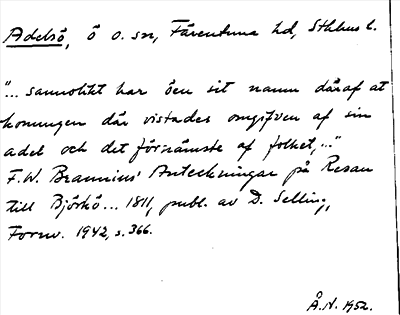 Adelsö, ö o. sn, Färentuna hd, Sthlms l.
"... sannolikt har öen sit namn däraf at
konungen där vistades omgifven af sin
adel och det förnämste af folket,..."
F.W. Braunius' Anteckningar på Resan
till Björkö ... 1811, publ. av D. Selling,
Fornv. 1942, s. 366.
Å.N. 1952.